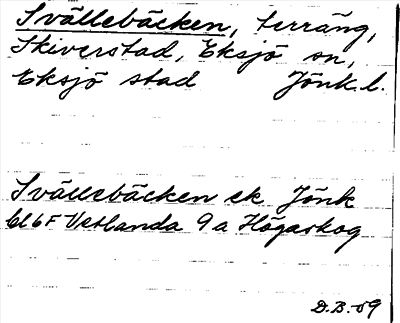 Svällebäcken, terräng,
Skiverstad, Eksjö sn,
Eksjö stad Jönk. l.
Svällebäcken ek Jönk
6l6F Vetlanda 9a Högarskog
D.B.-59